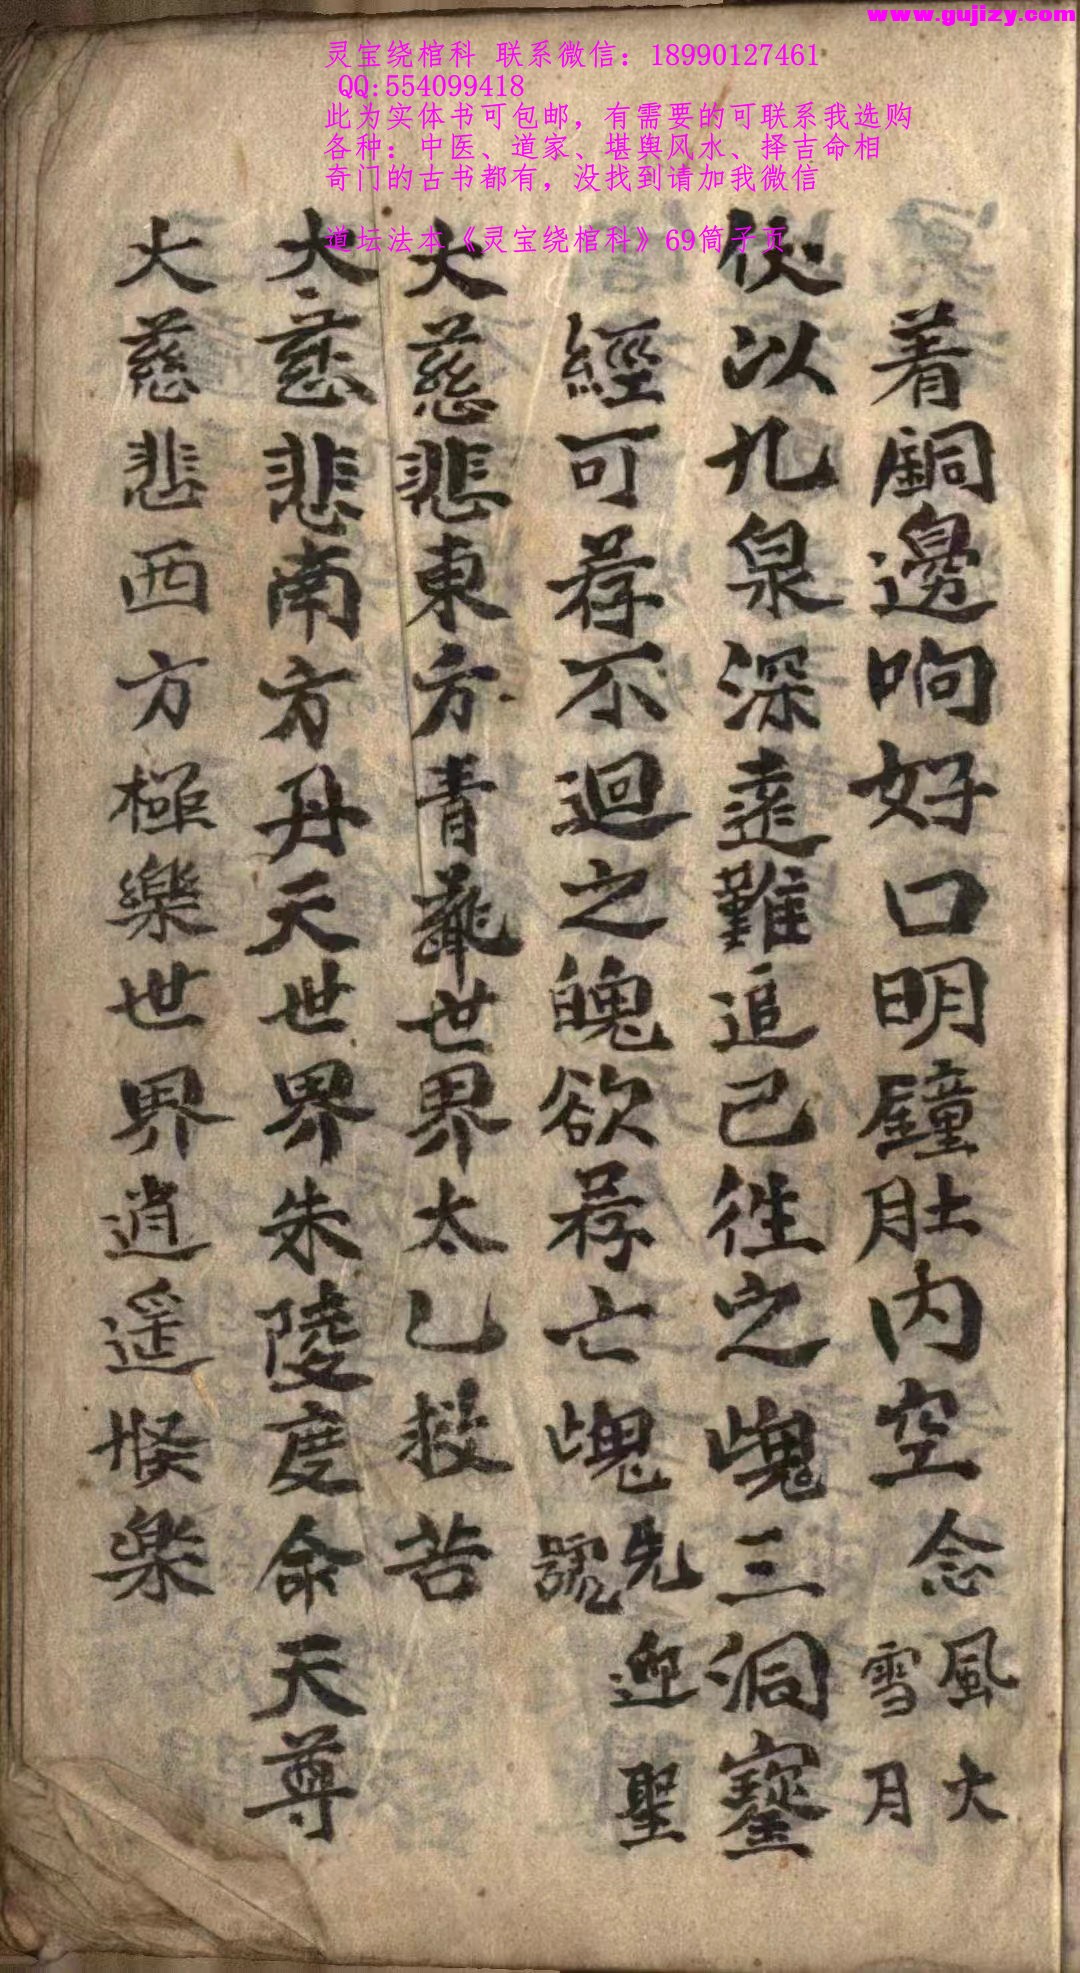 www.gujizy.com
灵宝绕棺科 联系微信：18990127461
QQ:554099418
此为实体书可包邮，有需要的可联系我选购
各种：中医、道家、堪舆风水、择吉命相
奇门的古书都有，没找到请加我微信
道坛法本《灵宝绕棺科》69筒子页
着銅邊响好口明鐘肚内空念風大
雪月
伏以九泉深遠難追已徃之魂三洞寳
經可荐不迴之魄欲荐亡魂先迎聖
號
大慈悲東方青華世界太乙救苦
大慈悲南方丹天世界朱陵度命天尊
大慈悲西方極樂世界逍遥快樂